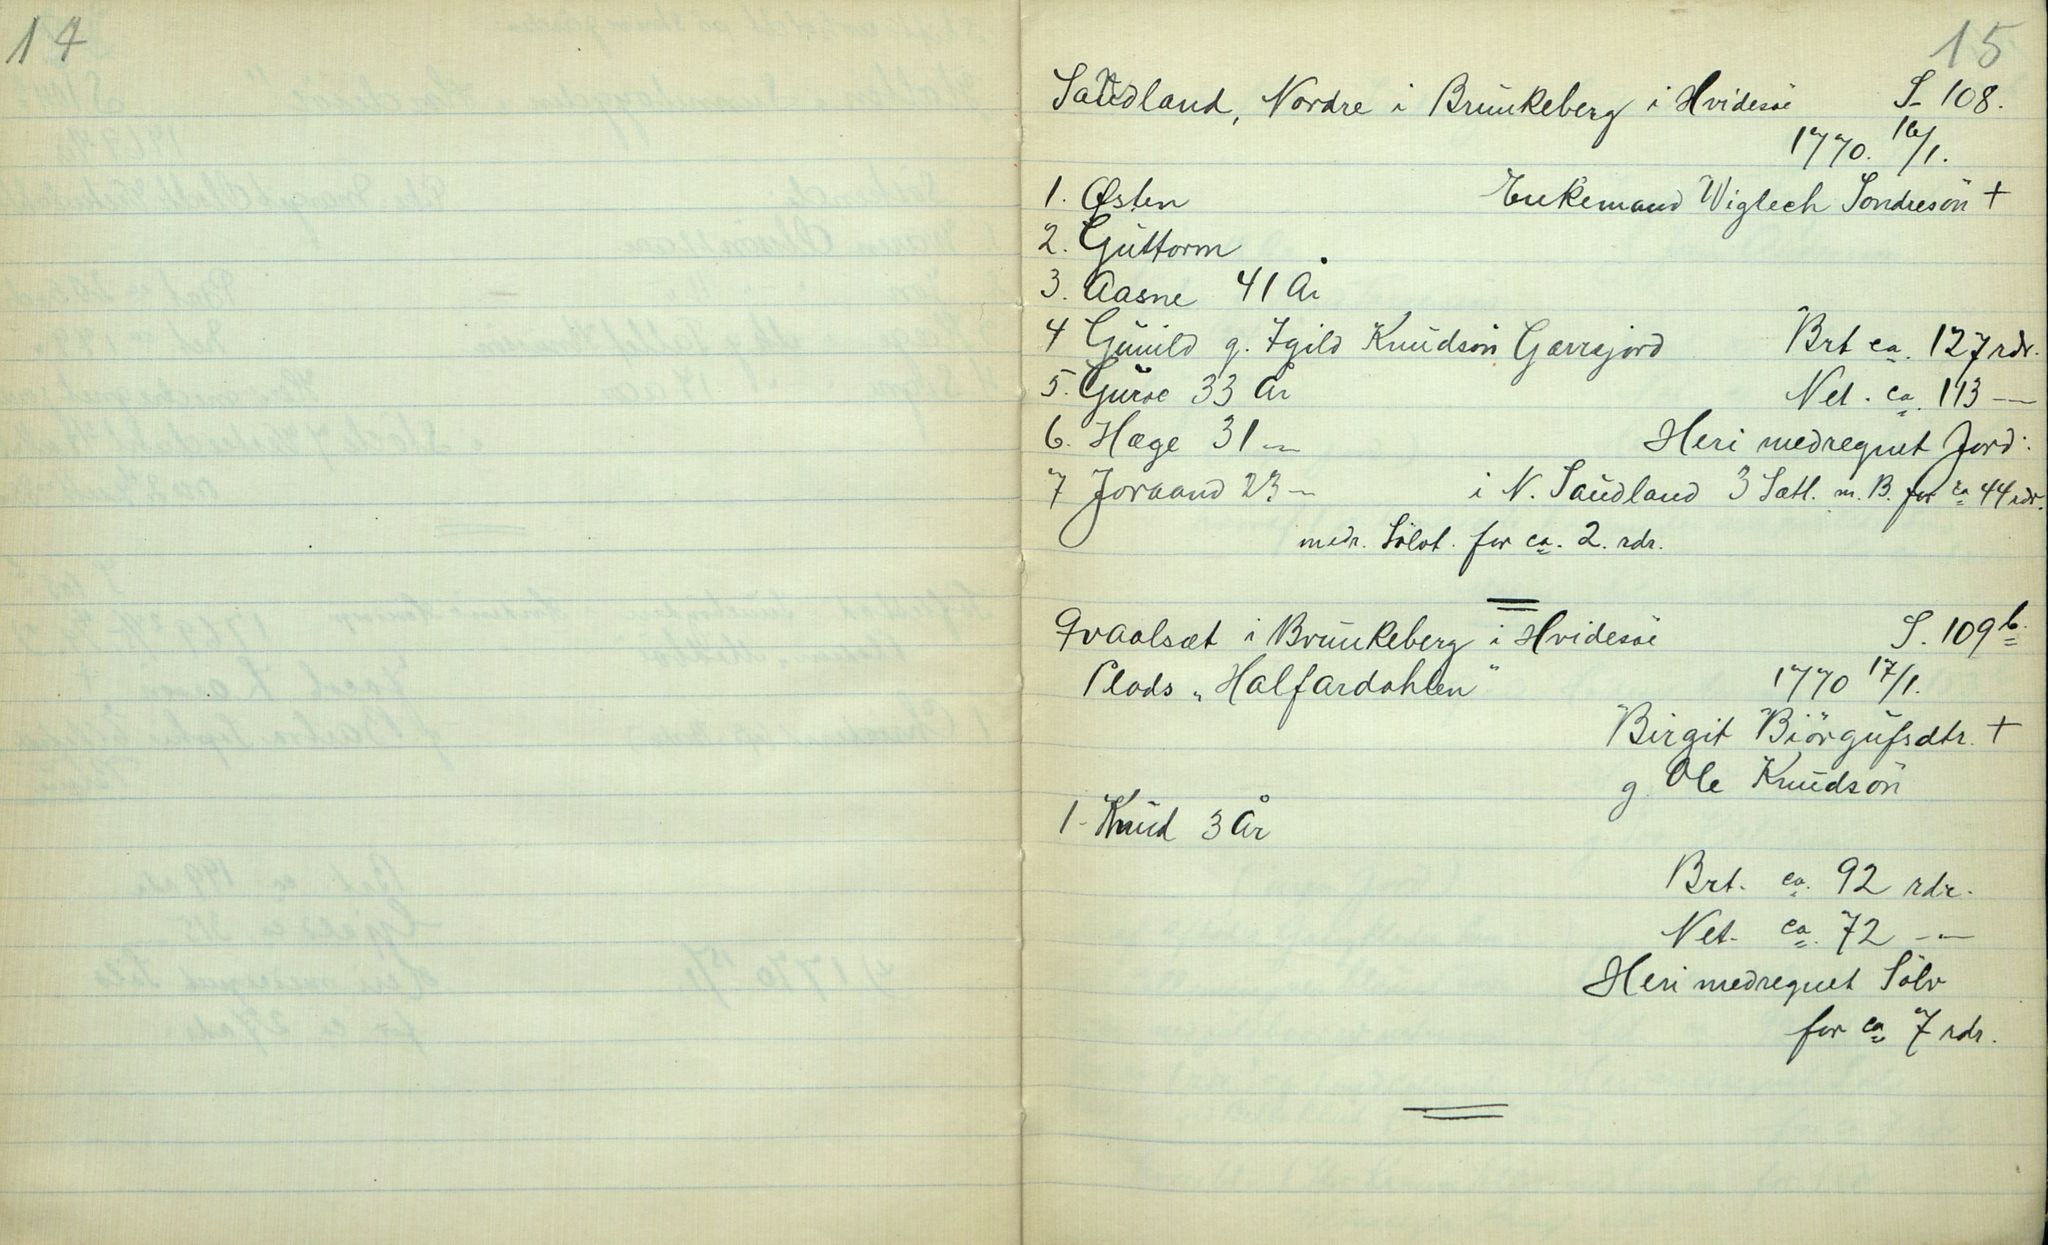 14
15
Saudland, Nordre i Brunkeberg i Hvidesøe S. 108.
1770. 16/1.
1. Østen Enkemand Wiglech Sondresön +
2. Guttorm
3. Aasne 41 År
4 Gunild g. Igild Knudsön Garsjord Brt ca. 127 rdr.
5. Guroe 33 År Net. ca. 113 —
6. Hæge 31 — Heri medregnet Jord:
7 Joraand 23 — i N. Saudland 3 Sætl. m. B. for ca 44 rdr.
medr. Sölvt. for ca. 2. rdr.
Qvaalsæt i Brunkeberg i Hvidesøe S. 109 b.
Plads „Halfardahlen" 1770 17/1.
Birgit Biörgufsdtr. +
g. Ole Knudsön
1. Knud 3 År
Brt. ca. 92 rdr.
Net. ca. 72 —
Heri medregnet Sölv
for ca 7 rdr.